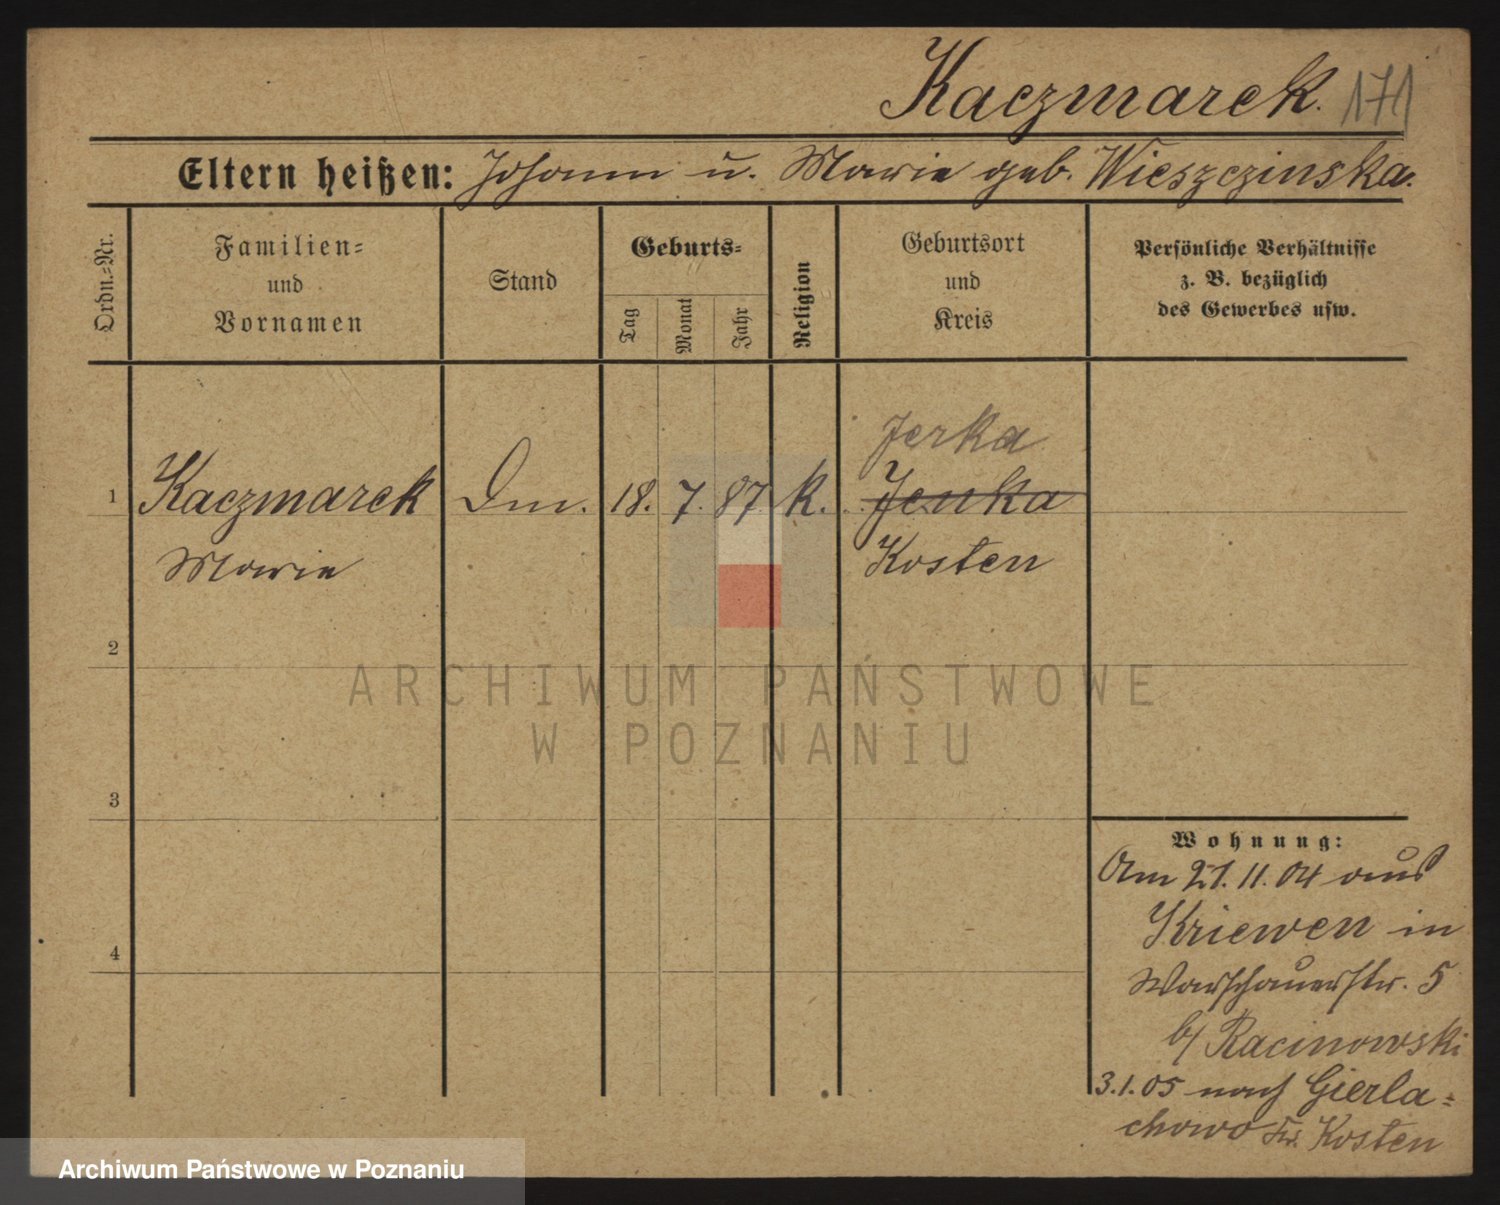 Kaczmarek. 171
Eltern heißen: Johann u. Marie geb. Wieszczinska.
Ordn.=Nr.
Familien=
und
Vornamen
Stand
Geburts=
Tag
Monat
Jahr
Religion
Geburtsort
und
Kreis
Persönliche Verhältnisse
z. B. bezüglich
des Gewerbes usw.
Jerka
1 Kaczmarek Dm. 18. 7. 87 k. Jenka
Marie Kosten
2
ARCHIWUM PAŃSTWOWE
W POZNANIU
3
Wohnung:
Am 21. 11. 04 aus
Kriewen in
4
Warschauerstr. 5
b/ Racinowski
3.1.05 nach Gierla=
chowo Kr. Kosten
Archiwum Państwowe w Poznaniu